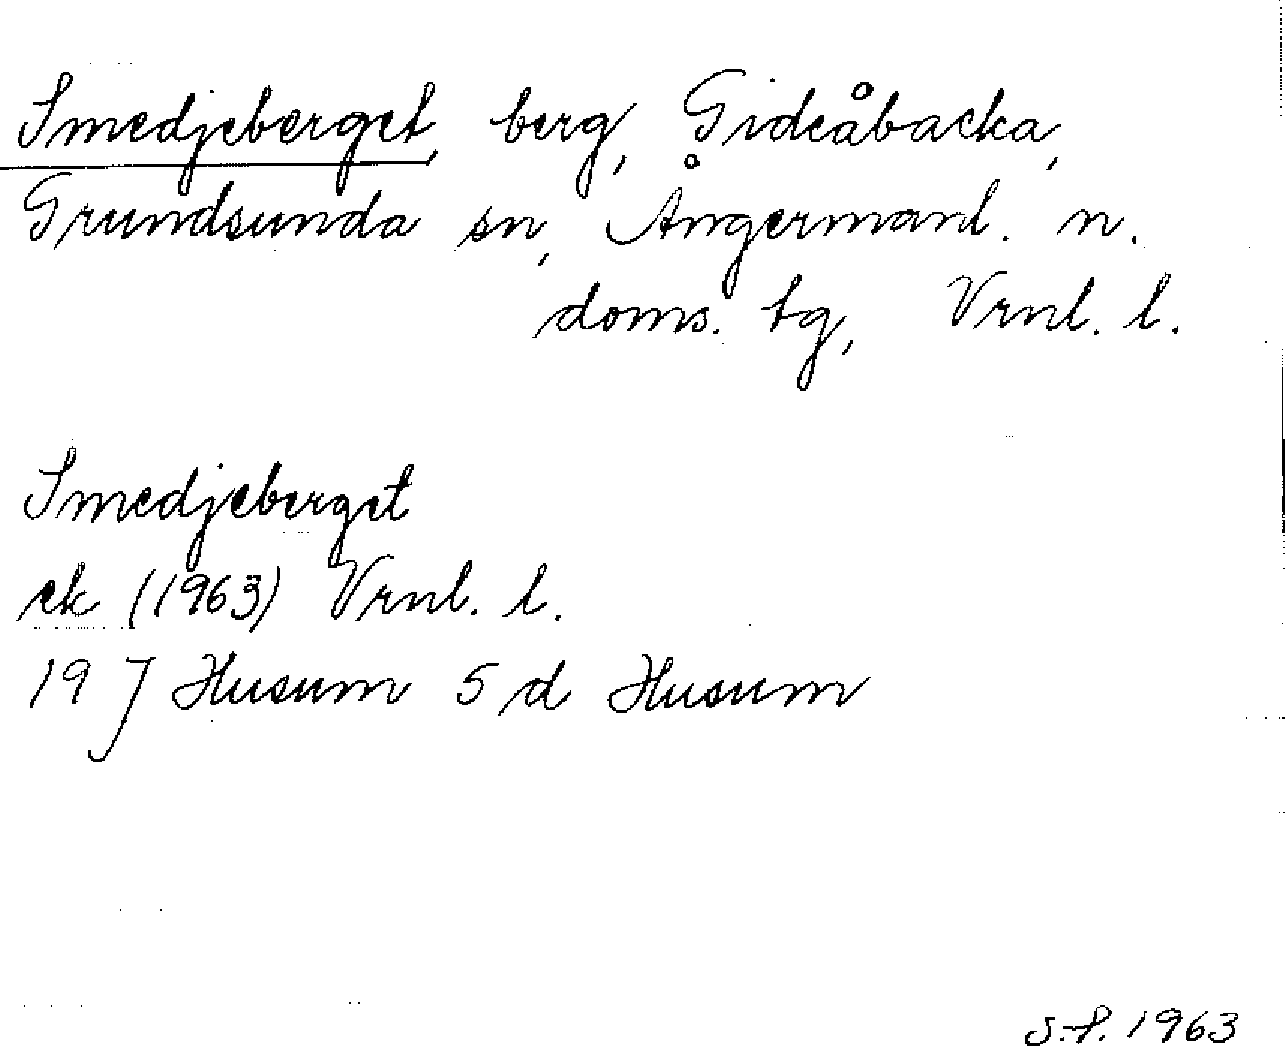 Smedjeberget, berg, Gideåbacka,
Grundsunda sn, Ångermanl. n.
doms. tg, Vrnl. l.
Smedjeberget
ek (1963) Vrnl. l.
19 J Husum 5 d Husum
S.-P. 1963